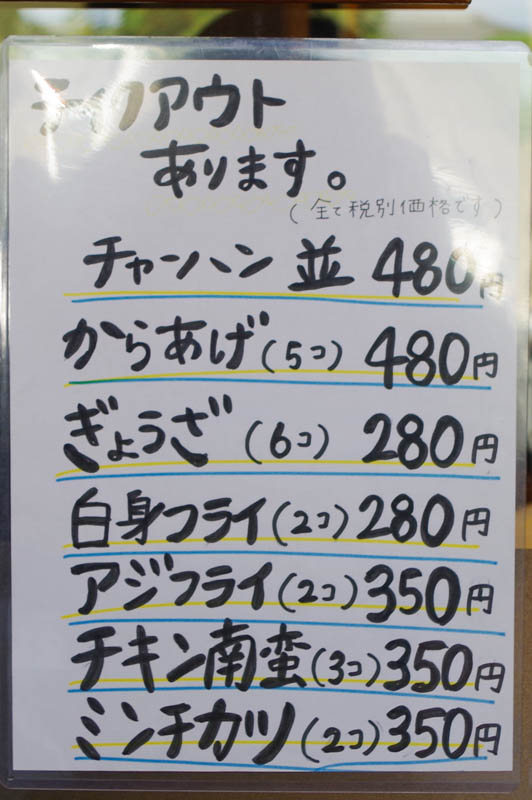 テイクアウト
あります。
(全て税別価格です)
チャーハン 並 480円
からあげ(5コ) 480円
ぎょうざ(6コ) 280円
白身フライ(2コ) 280円
アジフライ(2コ) 350円
チキン南蛮(3コ) 350円
ミンチカツ(2コ) 350円